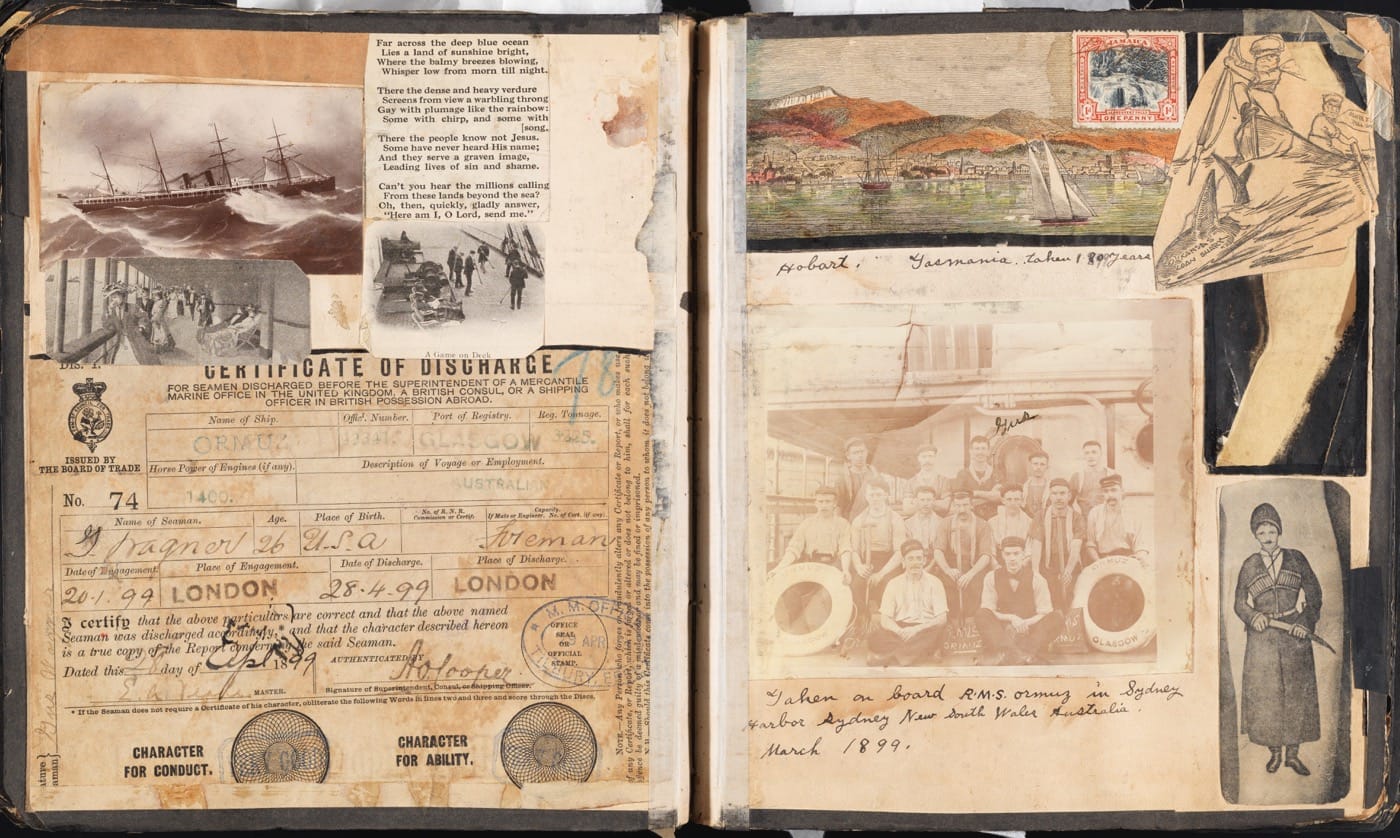 Far across the deep blue ocean
Lies a land of sunshine bright,
Where the balmy breezes blowing,
Whisper low from morn till night.
There the dense and heavy verdure
Screens from view a warbling throng
Gay with plumage like the rainbow:
Some with chirp, and some with
[song.
There the people know not Jesus.
Some have never heard His name;
And they serve a graven image,
Leading lives of sin and shame.
Can't you hear the millions calling
From these lands beyond the sea?
Oh, then, quickly, gladly answer,
"Here am I, O Lord, send me."
A Game on Deck
Dis. 1.
78
CERTIFICATE OF DISCHARGE
FOR SEAMEN DISCHARGED BEFORE THE SUPERINTENDENT OF A MERCANTILE
MARINE OFFICE IN THE UNITED KINGDOM, A BRITISH CONSUL, OR A SHIPPING
OFFICER IN BRITISH POSSESSION ABROAD.
ISSUED BY
THE BOARD OF TRADE
No. 74
Name of Ship. Offic'l. Number. Port of Registry. Reg. Tonnage.
ORMUZ GLASGOW
Horse Power of Engines (if any). Description of Voyage or Employment.
1400. AUSTRALIAN
Name of Seaman. Age. Place of Birth. No. of R. N. R. Commission or Certif. Capacity. If Mate or Engineer, No. of Cert. (if any).
G Wagner 26 U.S.a Fireman
Date of Engagement. Place of Engagement. Date of Discharge. Place of Discharge.
20.1.99 LONDON 28.4.99 LONDON
I certify that the above particulars are correct and that the above named
Seaman was discharged accordingly, and that the character described hereon
is a true copy of the Report concerning the said Seaman.
Dated this 28 day of April 1899
AUTHENTICATED BY
Cooper
MASTER.
Signature of Superintendent, Consul, or Shipping Officer.
M. M. OFFICE
OFFICE
SEAL
OR
OFFICIAL
STAMP.
APR
TILBURY
* If the Seaman does not require a Certificate of his character, obliterate the following Words in lines two and three and score through the Discs.
CHARACTER
FOR CONDUCT.
CHARACTER
FOR ABILITY.
JAMAICA
1d 1d
ONE PENNY
Hobart. Tasmania. taken years
Gus
ORMUZ
GLASGOW
R.M.S
ORMUZ
Taken on board R.M.S. ormuz in Sydney
Harbor Sydney New South Wales Australia.
March 1899.